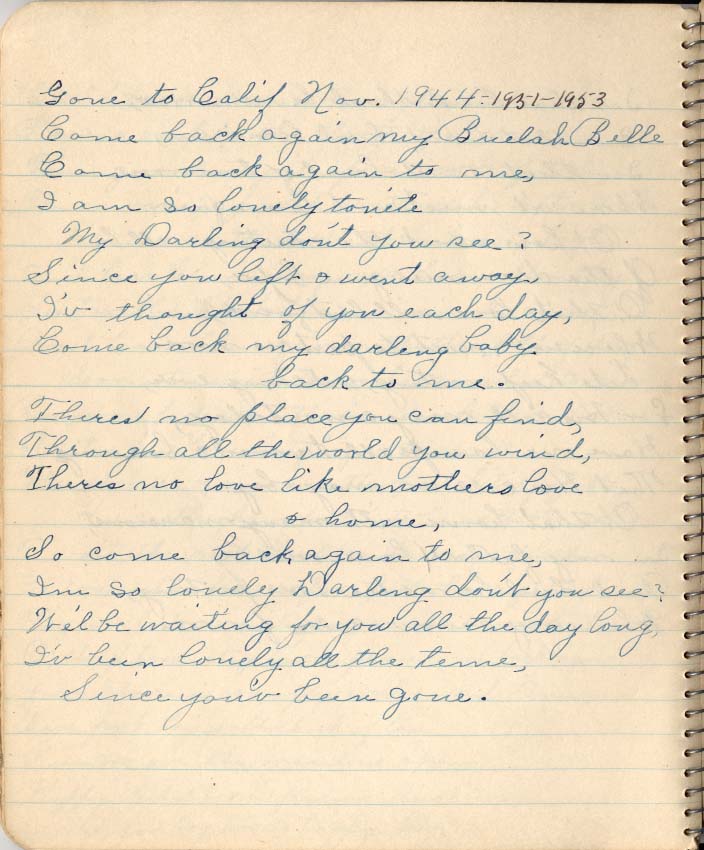 Gone to Calif Nov. 1944-1951-1953
Come back again my Buelah Belle
Come back again to me,
I am so lonely tonite
My Darling don't you see?
Since you left & went away
I'v thought of you each day,
Come back my darling baby
back to me.
Theres no place you can find,
Through all the world you wind,
Theres no love like mothers love
& home,
So come back again to me,
Im so lonely Darling don't you see?
We'l be waiting for you all the day long,
I'v been lonely all the time,
Since you'v been gone.